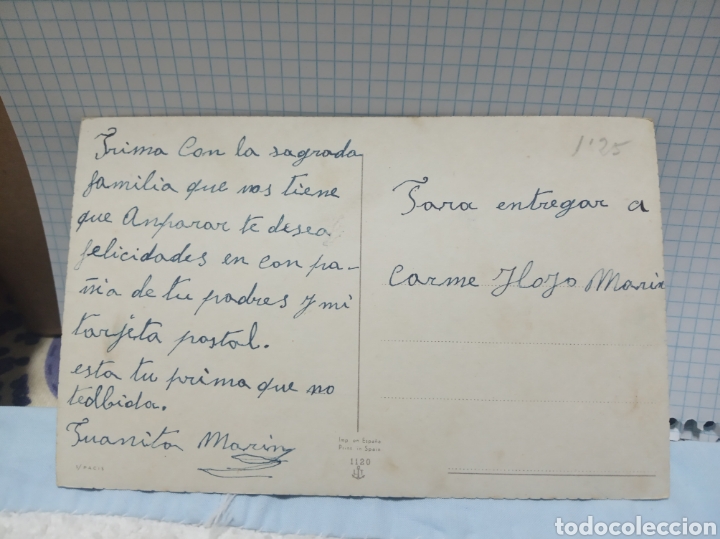 Prima Con la sagrada
familia que nos tiene
que Anparar te desea
felicidades en con pa-
ñia de tu padres y mi
tarjeta postal.
esta tu prima que no
tedbida.
Juanita Marin
1'25
Para entregar a
Carme Marin
Imp. en España
1120
todocoleccion